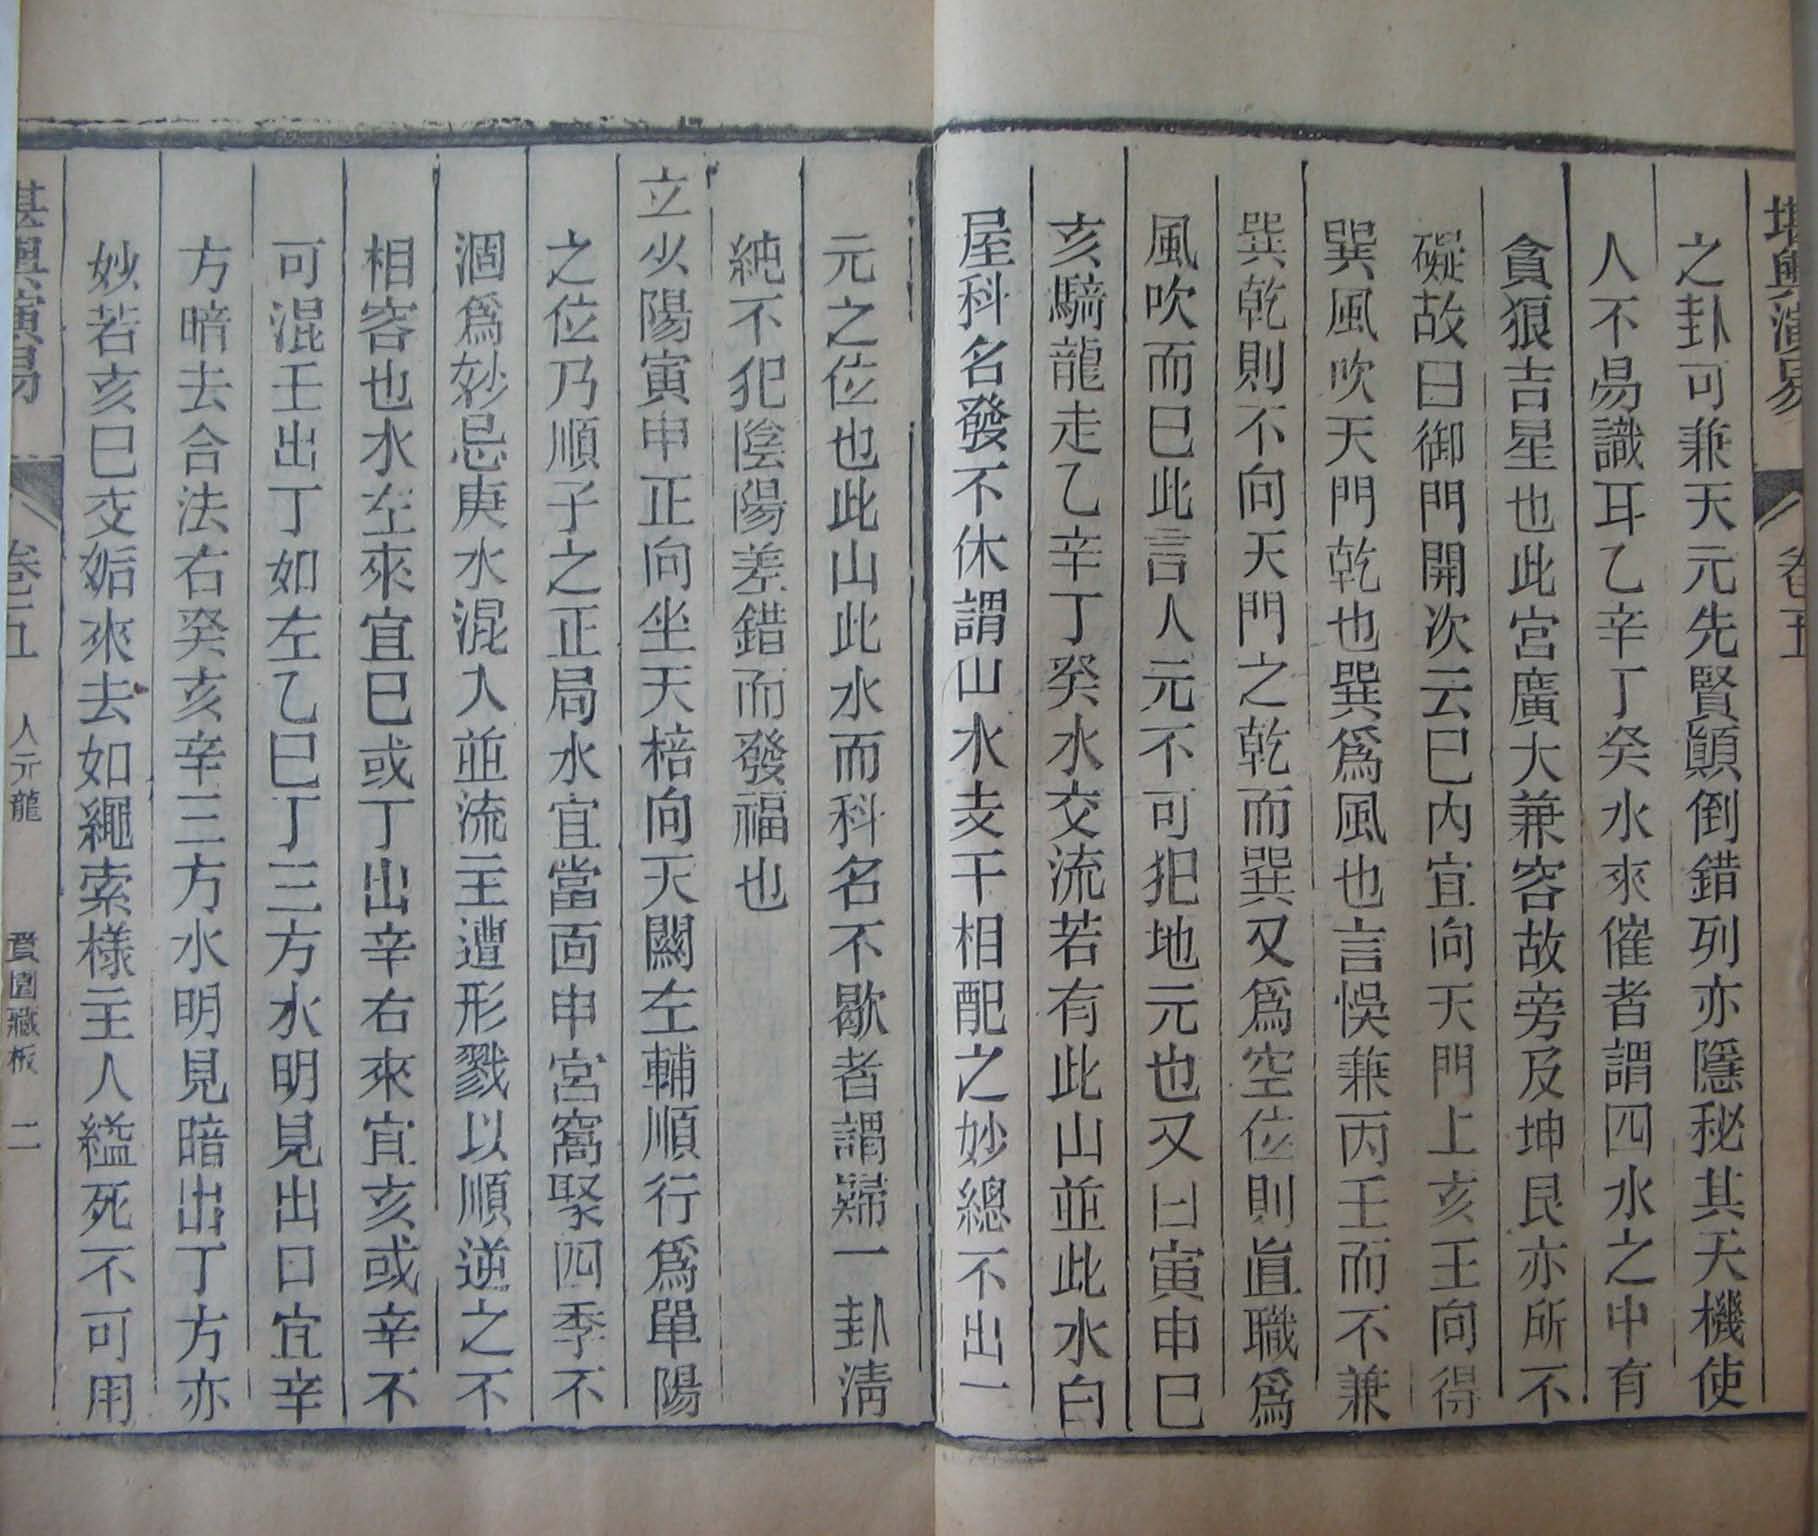 堪輿演易 卷五
之卦可兼天元先賢顚倒錯列亦隱秘其天機使
人不易識耳乙辛丁癸水來催者謂四水之中有
貪狼吉星也此宮廣大兼容故旁及坤艮亦所不
礙故曰御門開次云巳内宜向天門上亥壬向得
巽風吹天門乾也巽爲風也言悞兼丙壬而不兼
巽乾則不向天門之乾而巽又爲空位則眞職爲
風吹而巳此言人元不可犯地元也又曰寅申巳
亥騎龍走乙辛丁癸水交流若有此山並此水白
屋科名發不休謂山水支干相配之妙總不出一
元之位也此山此水而科名不歇者謂歸一卦淸
純不犯陰陽差錯而發福也
立少陽寅申正向坐天棓向天關左輔順行爲單陽
之位乃順子之正局水宜當面申宮窩聚四季不
涸爲妙忌庚水混入並流主遭形戮以順逆之不
相容也水左來宜巳或丁出辛右來宜亥或辛不
可混壬出丁如左乙巳丁三方水明見出口宜辛
方暗去合法右癸亥辛三方水明見暗出丁方亦
妙若亥巳交姤來去如繩索樣主人縊死不可用
堪輿演易 卷五 人元龍 賁園藏板 二